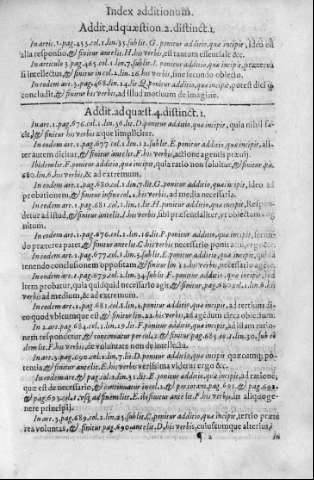 Index additionum.
Addit. ad quæstion. 2. distinct. 1.
In artic. 1. pag. 453. col. 1. lin. 35. sub lit. G. ponitur additio, quæ incipit, ideo est
alia responsio, & finitur ante lit. H. his verbis, est tantum essentiale &c.
In articulo 3. pag. 465. col. 1. lin. 7. sub lit. I. ponitur additio, quæ incipit, præterea
si intellectus, & finitur in col. 2. lin. 26. his verbis, sine secundo obiecto.
In eodem art. 3. pag. 468. lin. 14. sub lit. Q. ponitur additio, quæ incipit, potest dici
concludit, & finitur his verbis, ad illud motiuum de imagine.
Addit. ad quæst. 4. distinct. 1.
In art. 1. pag. 676. col. 1. lin. 36. lit. D. ponitur additio, quæ incipit, quia nihil fa-
cit, & finitur his verbis æque simpliciter.
In eodem art. 1. pag. 677. col. 1. lin. 1. sub lit. E. ponitur additio, quæ incipit, ali-
ter autem dicitur, & finitur ante lit. F. his verbis, actione agentis prius.
Ibidem lit. F. ponitur additio, quæ incipit, quia ratio non soluitur, & finitur pa.
680. lin. 6. his verbis, & ad extremum.
In eodem art. 1. pag. 680. col. 1. lin. 7. lit. G. ponitur additio, quæ incipit, ideo ad
probationem, & finitur inferius col. 2. his verbis, ad media necessaria.
In eodem art. 1. pag. 681. col. 1. lin. 1. lit. H. ponitur additio, quæ incipit, Respon-
detur ad istud, & finitur ante lit. I. his verbis, sibi præsendialiter, vt obiectum cogni-
tum.
In eodem art. 1. pag. 676. col. 1. lin. 16. lit. P. ponitur additio, quæ incipit, secun-
do præterea patet, & finitur ante lit. C. his verbis necessario ponitur, ergo &c.
In eodem art. 1. pag. 677. col. 1. lin. 3. sub lit. E. ponitur additio, quæ incipit,
tenendo conclusionem oppositam, & finitur lin 33. his verbis, necessario agens.
In eodem art. 1. pag. 676. col. 1. lin. 34. sub lit. C. ponitur additio, quæ incipit,
lem probatur, quia quidquid necessario agit, & finitur, pag. 680. col. 1. lin. 6. his
verbis ad medium, & ad extremum.
In eodem art. 1. pag. 681. col. 1. lin. 1. ponitur additio, quæ incipit, ad tertium di-
co quod vbicumque est, & finitur lin. 22. his verbis, ad agendum circa obiectum.
In 2. art. pag. 684. col. 1. lin. 29. lit. P. ponitur additio, quæ incipit, ad istam ratio-
nem respondetur, & continuatur per col. 2. & finitur pag. 685. col. 1. lin. 30. sub ea-
dem lit. P. his verbis, de voluntate non de intellectu.
In art. 3. pag. 690. col. 1. lin. 7. lit. D. ponitur additio, quæ incipit, quæcumque po-
tentia, & finitur ante lit. E. his verbis verissima videtur ergo &c.
In eodem art. & pag. col. 1. lin. 31. lit. E. ponitur additio, quæ incipit, ad rationem,
quæ est de necessario, & continuatur in col. 2. & per totam pag. 691. & pag. 692.
& pag. 693. col. 1. vsq; ad finem lit. E. & finitur ante lit. F. his verbis, in aliquo ge-
nere principij.
In art. 3. pag. 689. col. 1. lin. 25. sub lit. C. ponitur additio, quæ incipit, tertio præte-
rea voluntas, & finitur pag. 690. ante lit. D. his verbis, cuiuscumque alterius,
¶ 2 in